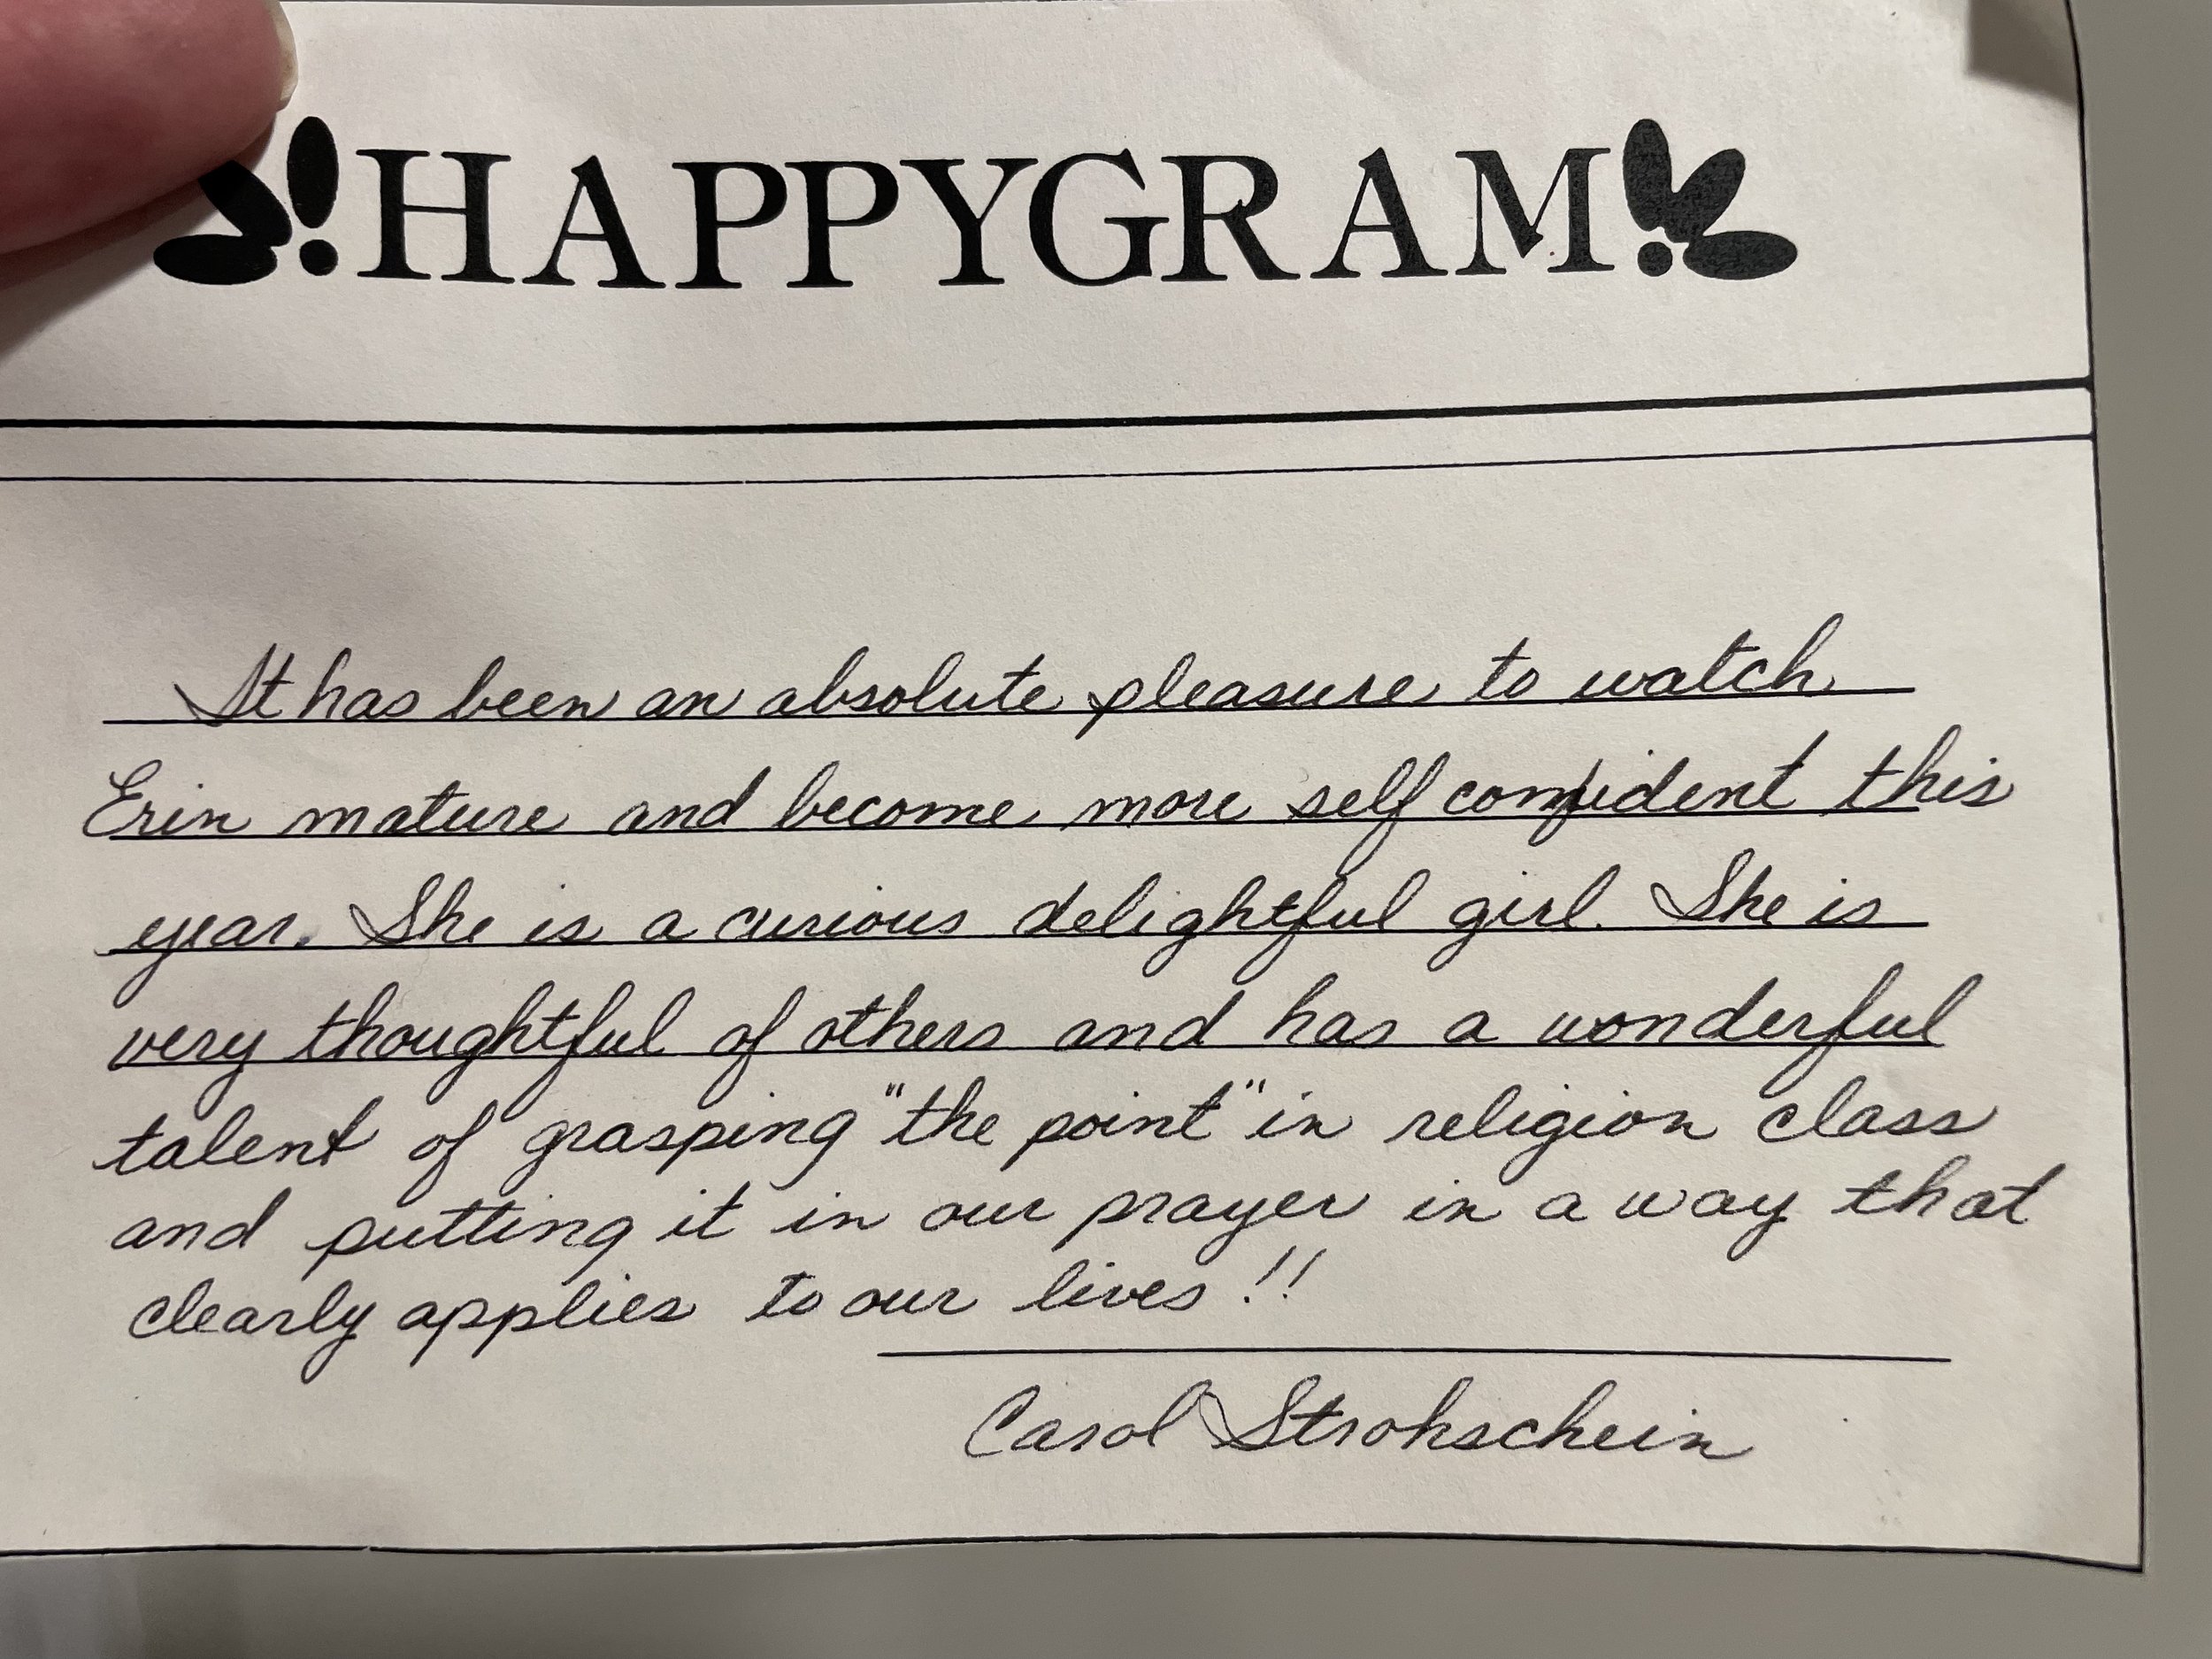 !HAPPYGRAM!
It has been an absolute pleasure to watch
Erin mature and become more self confident this
year. She is a curious delightful girl. She is
very thoughtful of others and has a wonderful
talent of grasping "the point" in religion class
and putting it in our prayer in a way that
clearly applies to our lives!!
Carol Strohschein